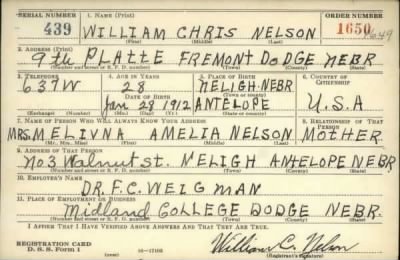 SERIAL NUMBER 1. Name (Print) ORDER NUMBER
439 WILLIAM CHRIS NELSON 1650 1649
(First) (Middle) (Last)
2. Address (Print)
9th PLATTE FREMONT DODGE NEBR
(Number and street or R. F. D. number) (Town) (County) (State)
3. Telephone 4. Age in Years 5. Place of Birth 6. Country of Citizenship
639W 28 NELIGH-NEBR
Date of Birth (Town or county)
Jan 28 1912 ANTELOPE U.S.A
(Exchange) (Number) (Mo.) (Day) (Yr.) (State or country)
7. Name of Person Who Will Always Know Your Address 8. Relationship of That Person
MRS. MELIVNA AMELIA NELSON MOTHER
(Mr., Mrs., Miss) (First) (Middle) (Last)
9. Address of That Person
No3 Walnut st. NELIGH ANTELOPE NEBR
(Number and street or R. F. D. number) (Town) (County) (State)
10. Employer's Name
DR. F. C. WEIGMAN
11. Place of Employment or Business
Midland COLLEGE DODGE NEBR.
(Number and street or R. F. D. number) (Town) (County) (State)
I Affirm That I Have Verified Above Answers and That They Are True.
REGISTRATION CARD
D. S. S. Form 1 16-17105 William C. Nelson
(Registrant's signature)